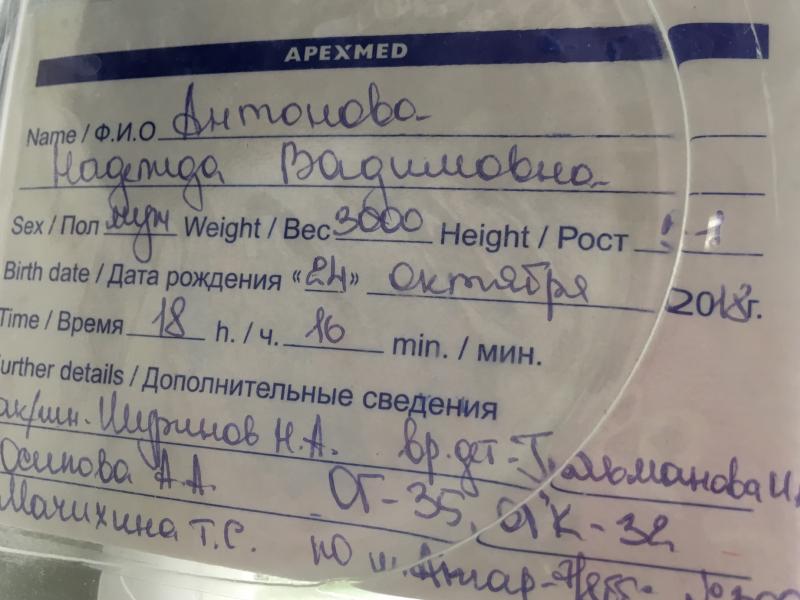 APEXMED
Name / Ф.И.О Антонова
Надежда Вадимовна
Sex / Пол муж Weight / Вес 3000 Height / Рост
Birth date / Дата рождения «24» октября 2018г.
Time / Время 18 h. / ч. 16 min. / мин.
urther details / Дополнительные сведения
ак/гин. Ширинов Н.А. вр.дет-
Осипова А.А. ОГ-35, ОГК-32
Мачихина Т.С. по ш. Апгар-7/8